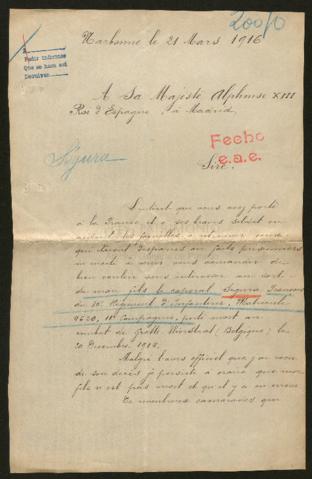 20010
Narbonne le 21 Mars 1916
A Sa Majesté Alphonse XIII
Roi d'Espagne, à Madrid
Fecho
e.a.e.
Segura
Sire,
L'intérêt que vous avez porté
à la France et à ses braves soldats en
aidant les familles à retrouver ceux
que disparus ou faits prisonniers
à vous demander de
bien vouloir vous intéresser au sort
de mon fils le caporal Segura François
du Régiment d'Infanterie, Matricule
4620, 11e Compagnie, porté mort au
combat de (Belgique) le
20 Décembre 1914.
Malgré l'avis officiel que j'ai reçu
de son décès je persiste à croire que mon
fils n'est pas mort et qu'il y a eu erreur
De nombreux camarades que